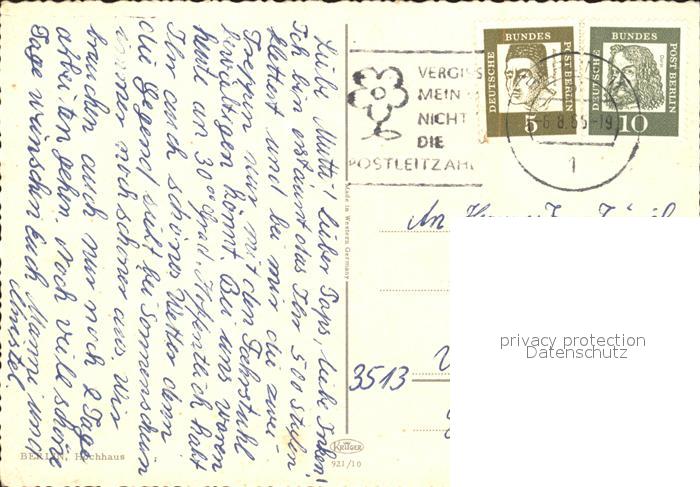 Liebe Mutti! lieber Paps, liebe
Ich bin erstaunt das Ihr 510 Stufen
klettert und bei mir die zwei
Treppen nur mit den Fahrstuhl
bewältigen könnt. Bei uns waren
heute an 30°° Grad. Hoffentlich habt
Ihr auch schönes Wetter denn
die Gegend sieht bei Sonnenschein
immer noch schöner aus. Wir
brauchen auch nur noch 2 Tage
arbeiten gehen. Noch viele schöne
Tage wünschen Euch Manni und
Christel
BERLIN, Hochhaus
Made in Western Germany
KRÜGER
921/10
VERGISS
MEIN
NICHT
DIE
POSTLEITZAHL
DEUTSCHE BUNDES POST BERLIN
5
DEUTSCHE BUNDES POST BERLIN
Dürer
10
-6.8.65-19
1
An
3513
privacy protection
Datenschutz